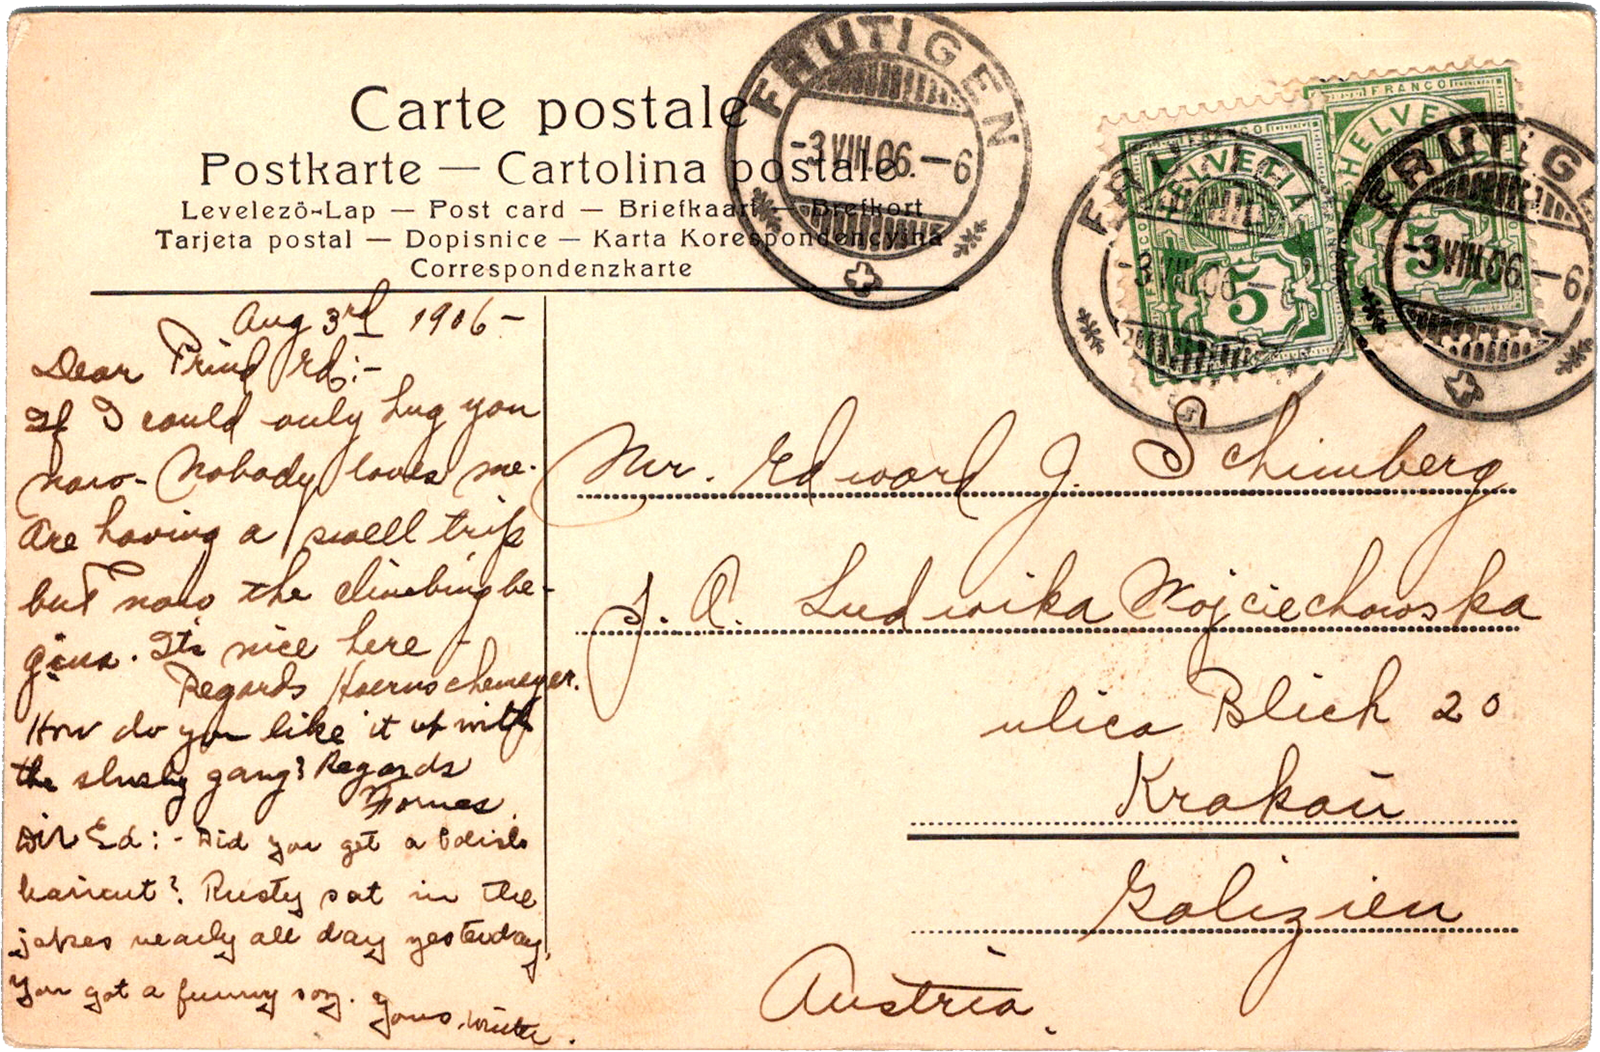 Carte postale
Postkarte — Cartolina postale
Levelező-Lap — Post card — Briefkaart — Brefkort
Tarjeta postal — Dopisnice — Karta Korespondencyjna
Correspondenzkarte
FRUTIGEN
-3.VIII.06.—6
FRANCO
HELVETIA
5
FRUTIGEN
-3.VIII.06.—
FRANCO
HELVETIA
5
FRUTIGEN
-3.VIII.06.—6
Aug 3rd 1906 -
Dear Friend Ed:-
If I could only hug you
now - Nobody loves me.
Are having a swell trip
but now the climbing be-
gins. It's nice here -
Regards Hoernschemeyer.
How do you like it up with
the slushy gang? Regards
Fornes.
Dir Ed: - Did you get a Polish
haircut? Rusty sat in the
jakes nearly all day yesterday
You got a funny soy. Yours,
Mr. Edward J. Schimberg
Ludwika Wojciechowska
ulica Blich 20
Krakau
Galizien
Austria.